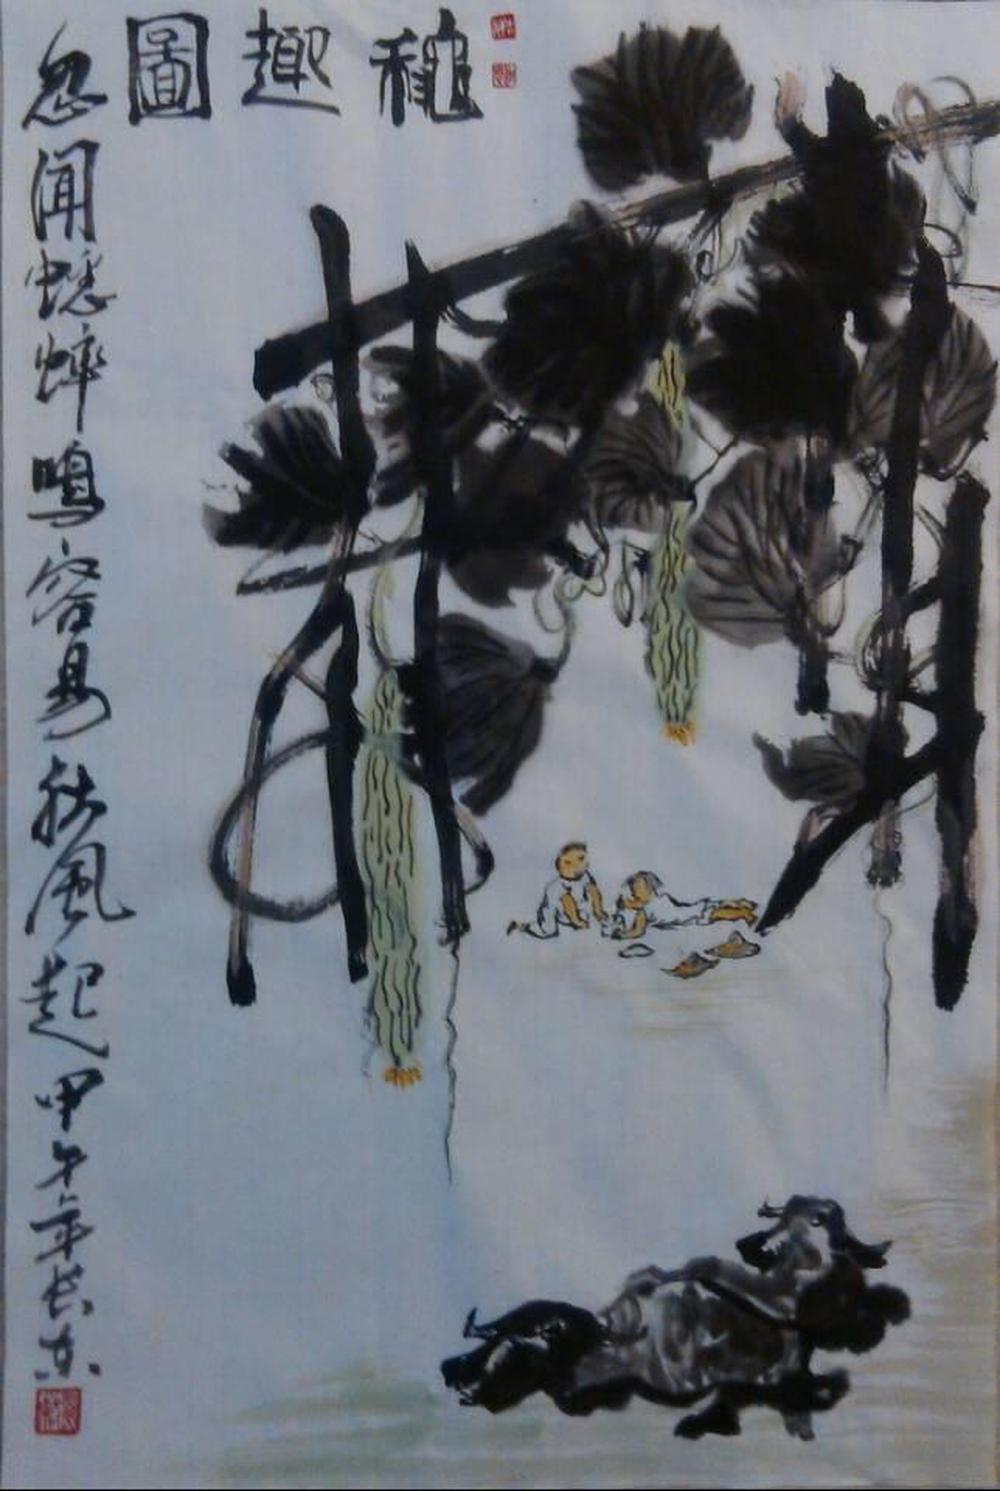 龝趣圖
忽闻蟋蟀鸣容易秋風起甲午年长东